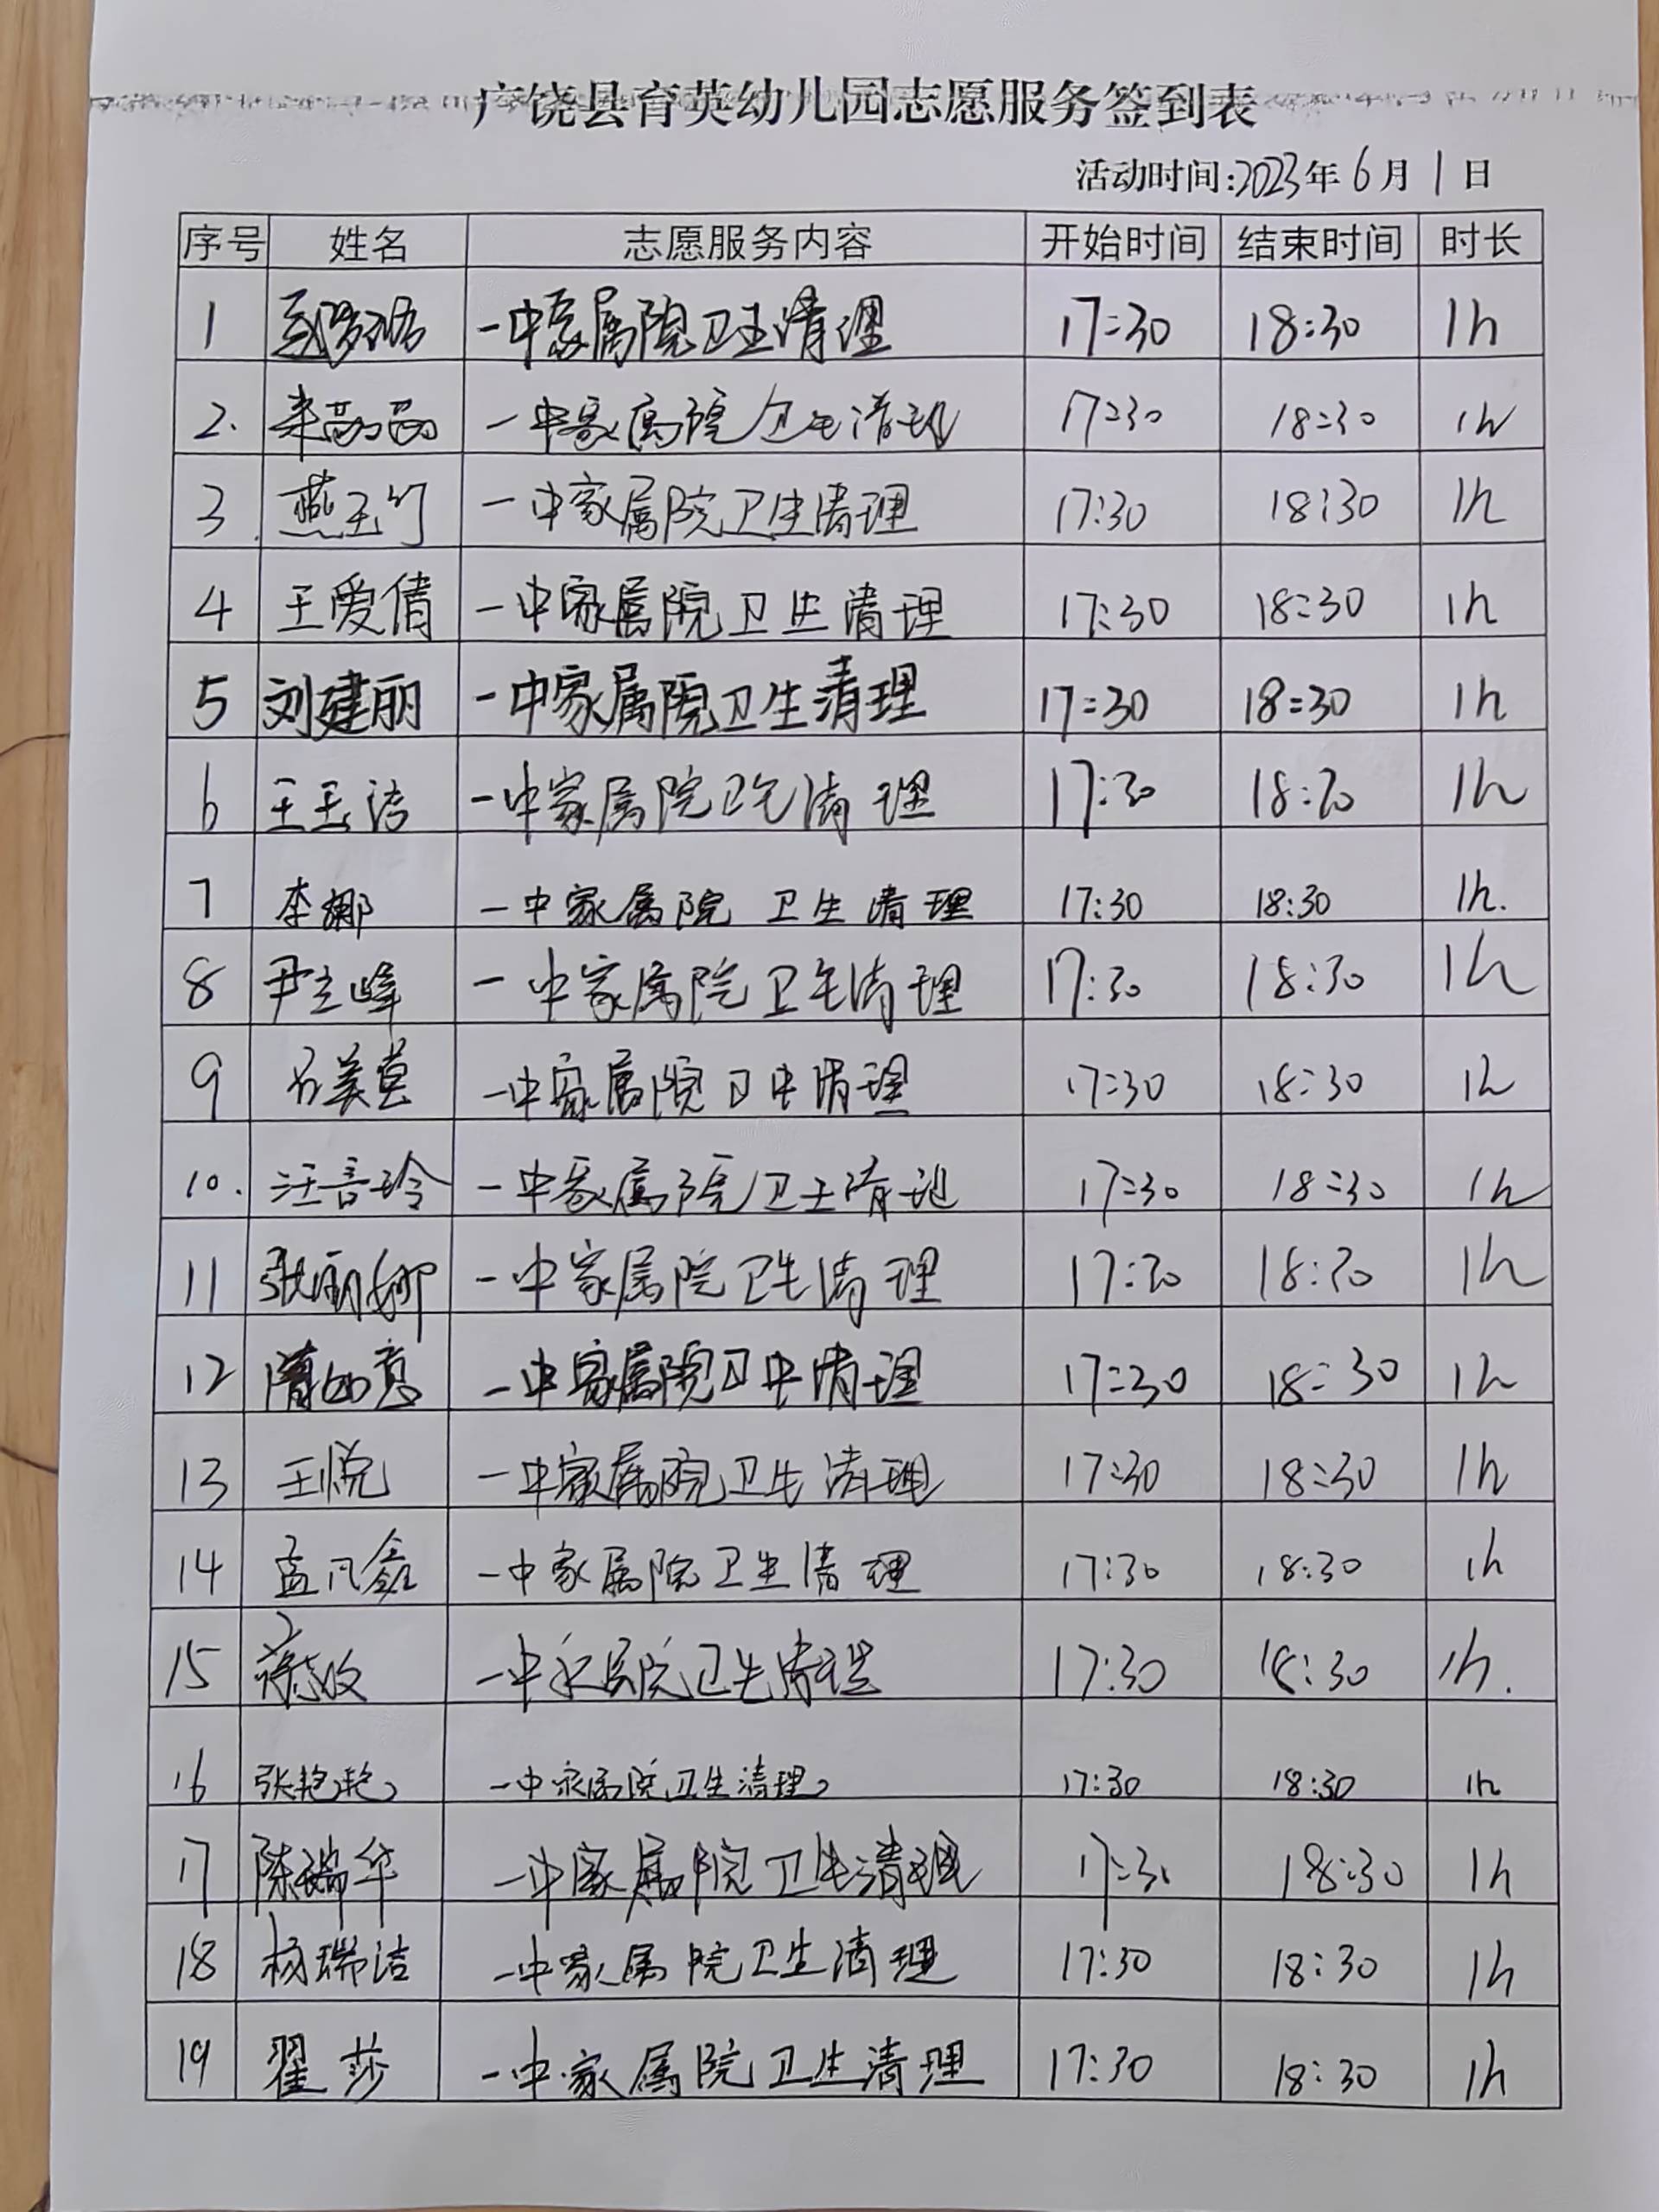 广饶县育英幼儿园志愿服务签到表
活动时间:2023年6月1日
序号 姓名 志愿服务内容 开始时间 结束时间 时长
1 一中家属院卫生清理 17:30 18:30 1h
2. 一中家属院卫生清理 17:30 18:30 1h
3. 燕玉竹 一中家属院卫生清理 17:30 18:30 1h
4 王爱倩 一中家属院卫生清理 17:30 18:30 1h
5 刘建丽 一中家属院卫生清理 17:30 18:30 1h
6 王玉洁 一中家属院卫生清理 17:30 18:30 1h
7 李娜 一中家属院卫生清理 17:30 18:30 1h.
8 尹立峰 一中家属院卫生清理 17:30 18:30 1h
9 一中家属院卫生清理 17:30 18:30 1h
10. 汪音玲 一中家属院卫生清理 17:30 18:30 1h
11 张丽娜 一中家属院卫生清理 17:30 18:30 1h
12 隋如意 一中家属院卫生清理 17:30 18:30 1h
13 王悦 一中家属院卫生清理 17:30 18:30 1h
14 孟凡鑫 一中家属院卫生清理 17:30 18:30 1h
15 一中家属院卫生清理 17:30 18:30 1h.
16 张艳艳 一中家属院卫生清理 17:30 18:30 1h
17 陈瑞华 一中家属院卫生清理 17:30 18:30 1h
18 杨瑞洁 一中家属院卫生清理 17:30 18:30 1h
19 翟莎 一中家属院卫生清理 17:30 18:30 1h